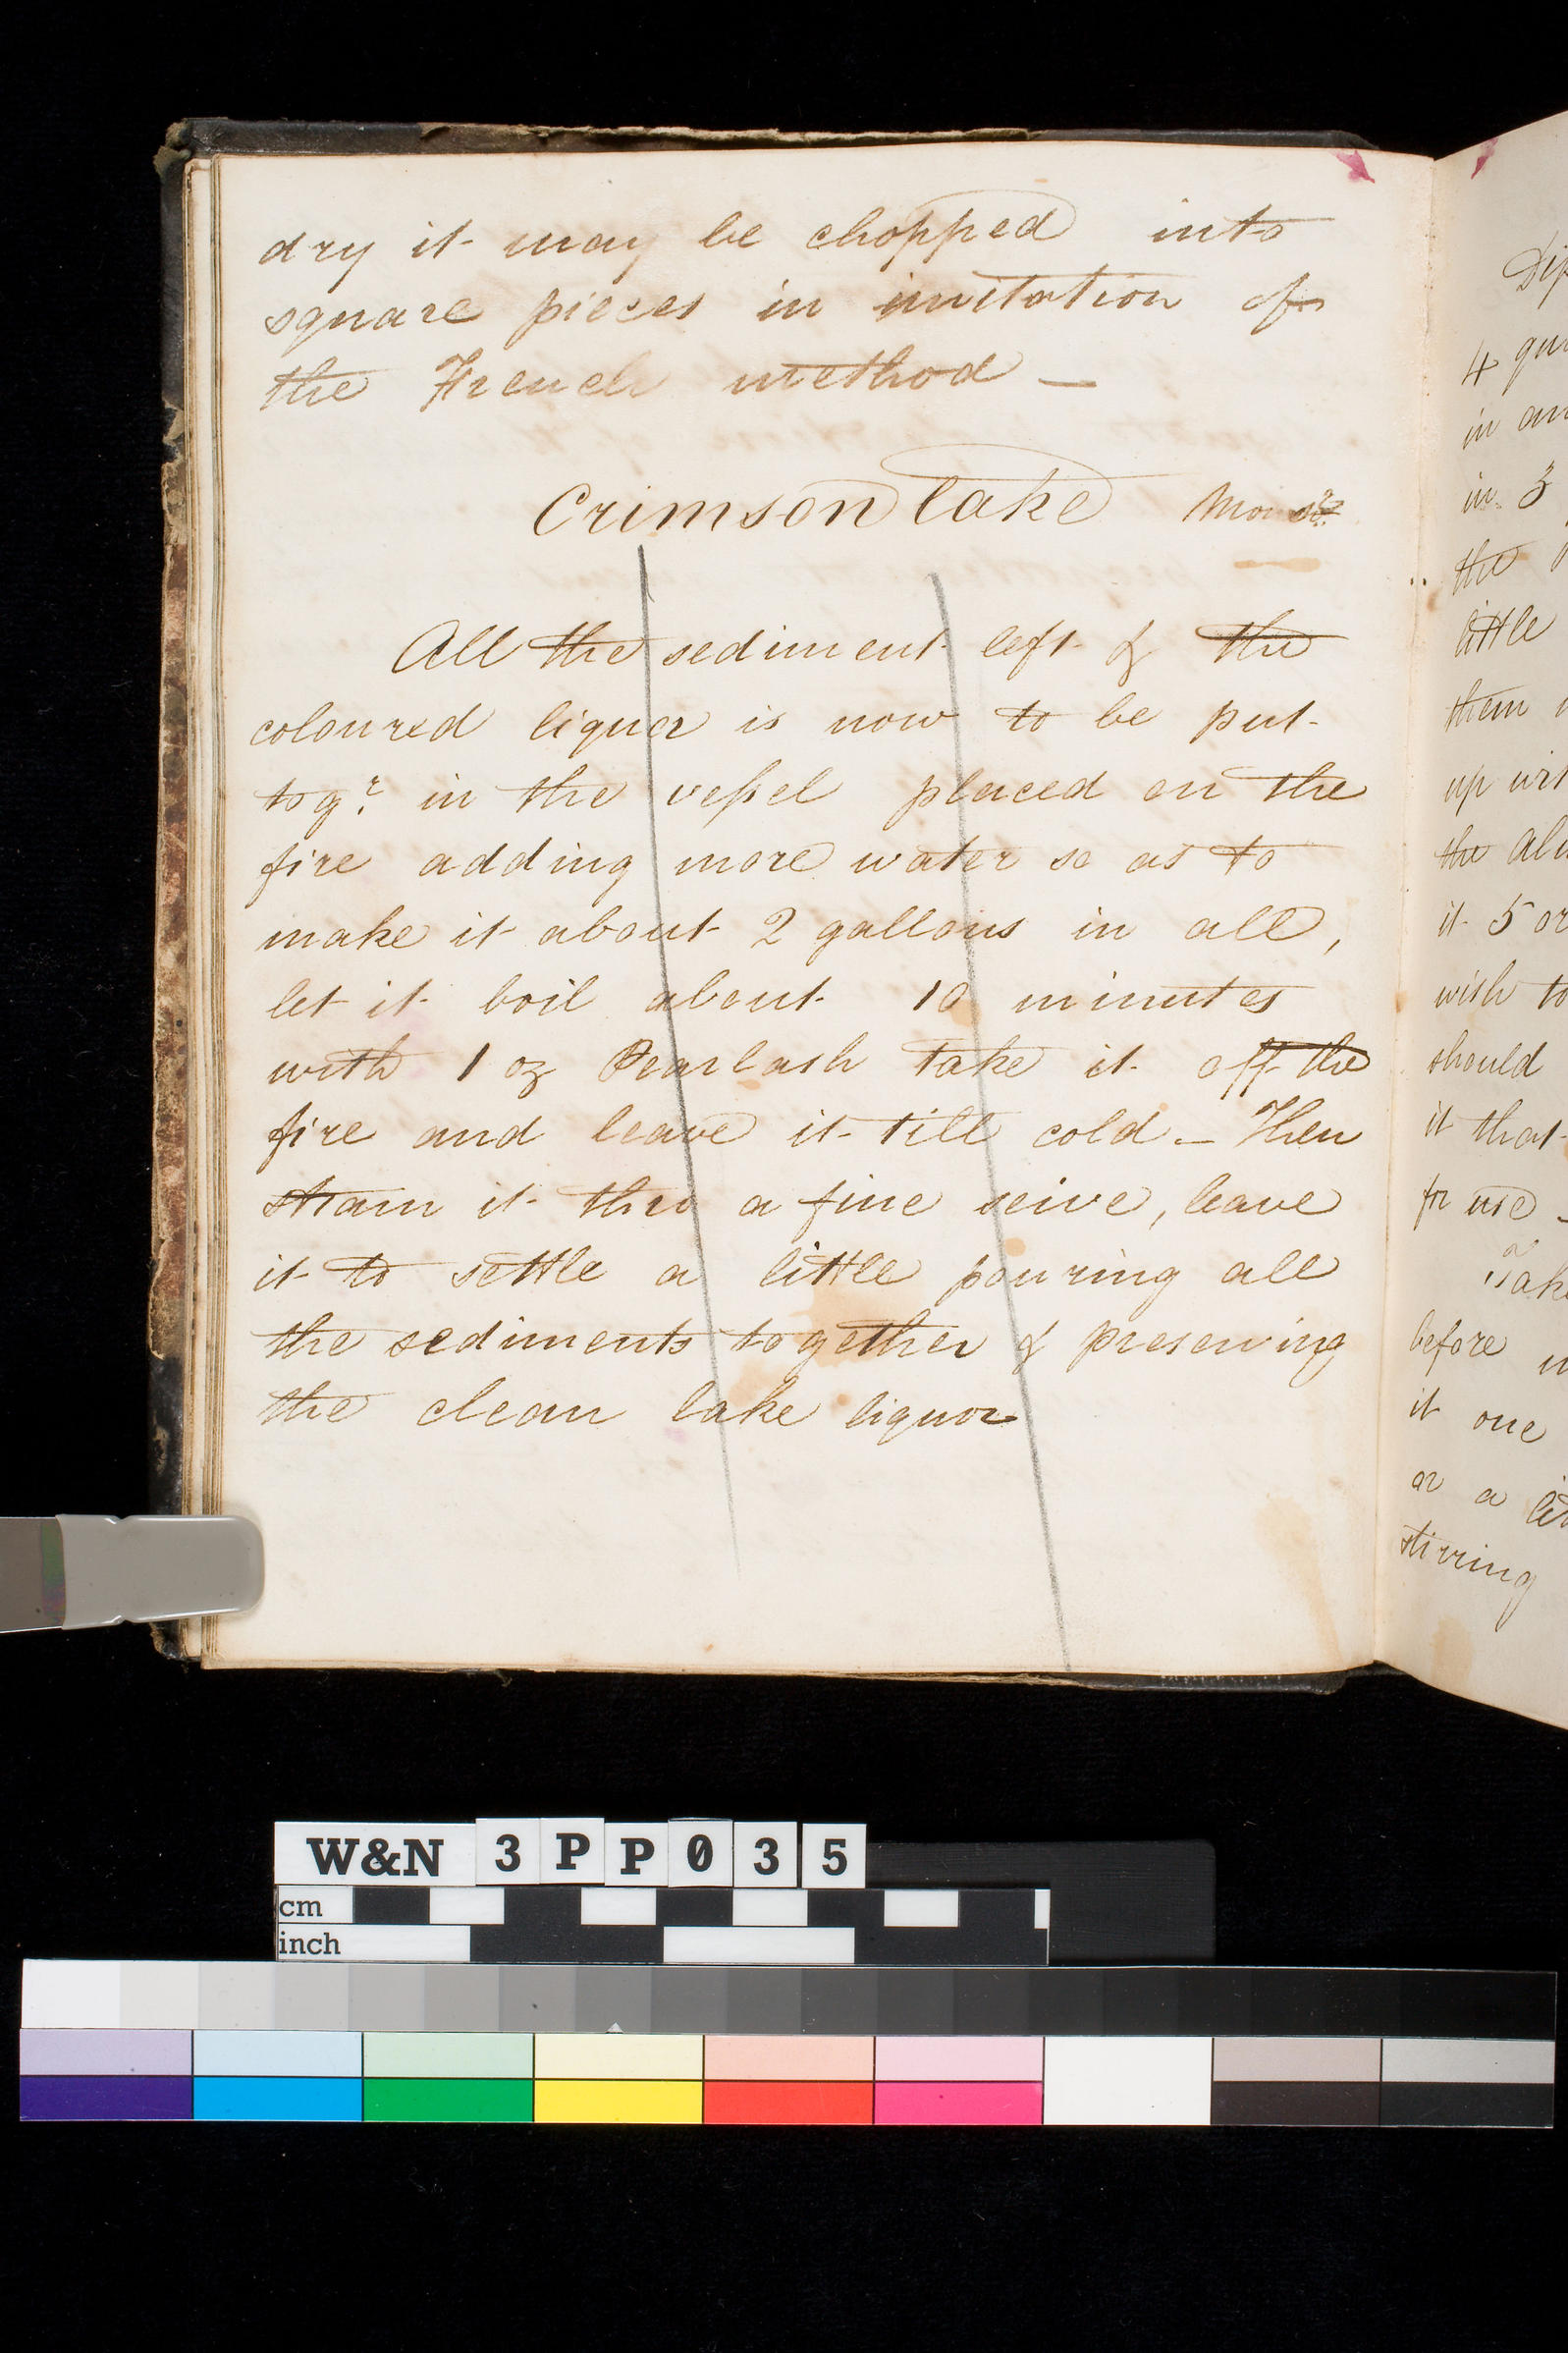 dry it may be chopped into
square pieces in imitation of
the French method —
Crimson lake
All the sediment left & the
coloured liquor is now to be put
togr. in the veſsel placed on the
fire adding more water so as to
make it about 2 gallons in all,
let it boil about 10 minutes
with 1 oz Pearlash take it off the
fire and leave it till cold – Then
strain it thro a fine seive, leave
it to settle a little pouring all
the sediments together & preserving
the clean lake liquor
4
in
in. 3
the
little
them
up
the
it 5 or
wish to
should
it that
for use –
before
it one
or a
stirring
W&N 3PP035
cm
inch